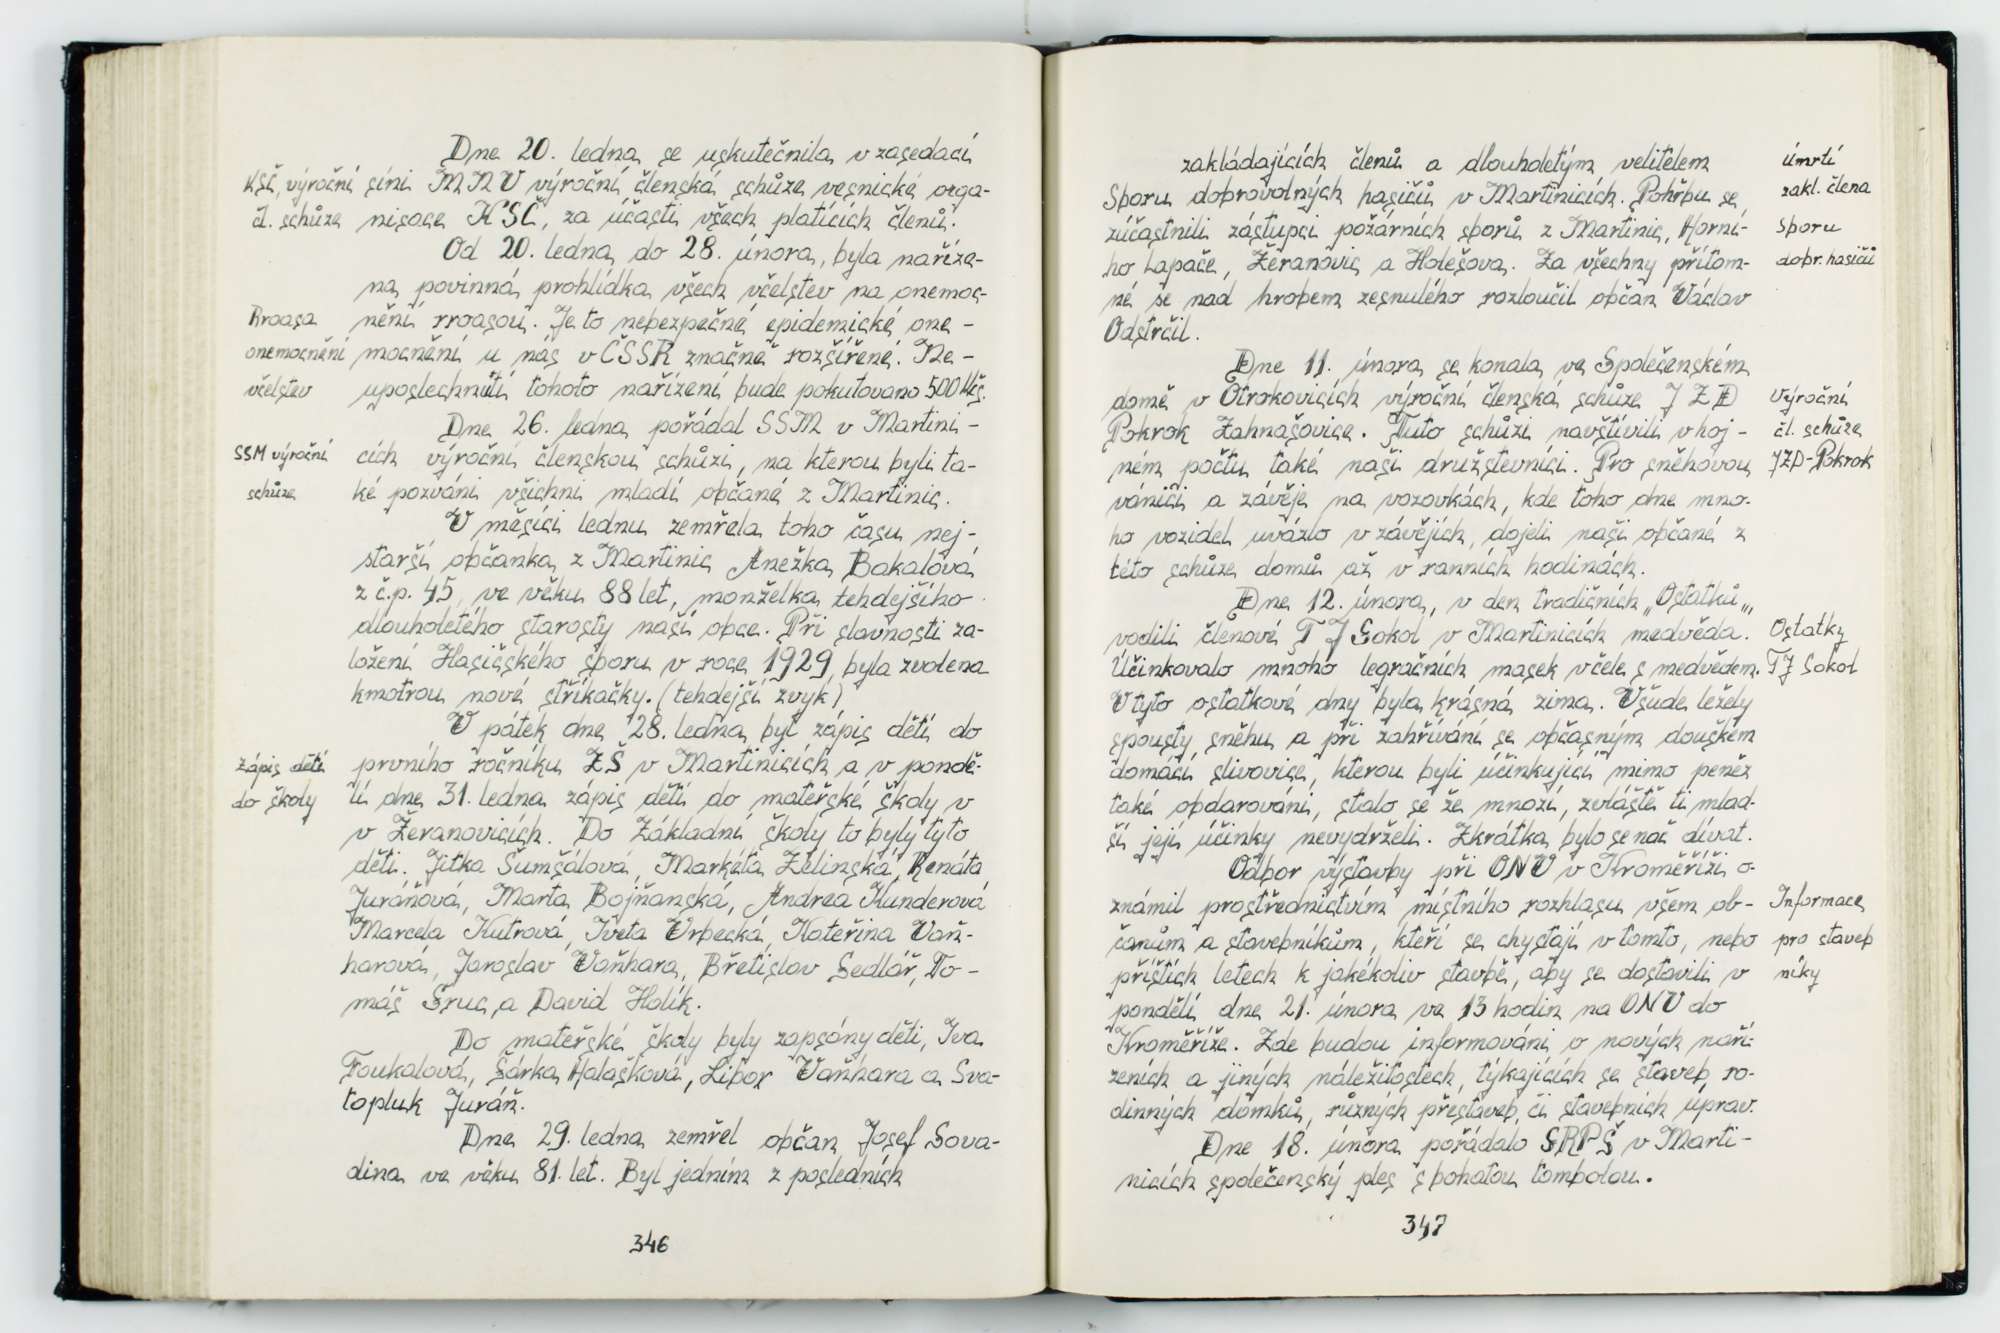 Dne 20. ledna se uskutečnila v zasedací
KSČ, výroční síni MNV výroční členská schůze vesnické orga-
čl. schůze nisace KSČ, za účasti všech platících členů.
Od 20. ledna do 28. února, byla naříze-
na povinná prohlídka všech včelstev na onemoc-
Rroasa nění rroasou. Je to nebezpečné epidemické one-
onemocnění mocnění u nás v ČSSR značně rozšířené. Ne-
včelstev uposlechnutí tohoto nařízení bude pokutováno 500 Kčs.
Dne 26. ledna pořádal SSM v Martini-
SSM výroční cích výroční členskou schůzi, na kterou byli ta-
schůze ké pozváni všichni mladí občané z Martinic.
V měsíci lednu zemřela toho času nej-
starší občanka z Martinic Anežka Bakalová
z č.p. 45, ve věku 88 let, manželka tehdejšího
dlouholetého starosty naší obce. Při slavnosti za-
ložení Hasičského sboru v roce 1929, byla zvolena
kmotrou nové stříkačky. (tehdejší zvyk)
V pátek dne 28. ledna byl zápis dětí do
Zápis dětí prvního ročníku ZŠ v Martinicích a v pondě-
do školy lí dne 31. ledna zápis dětí do mateřské školy v
v Žeranovicích. Do Základní školy to byly tyto
děti. Jitka Šumšálová, Markéta Zelinská, Renáta
Juráňová, Marta Bojňanská, Andrea Kunderová
Marcela Kutrová, Iveta Vrbecká, Kateřina Vaň-
harová, Jaroslav Vaňhara, Břetislav Sedlář, To-
máš Sruc, a David Holík.
Do mateřské školy byly zapsány děti, Iva
Foukalová, Šárka Halašková, Libor Vaňhara a Sva-
topluk Juráň.
Dne 29. ledna zemřel občan Josef Sova-
dina ve věku 81. let. Byl jedním z posledních
346
zakládajících členů a dlouholetým velitelem úmrtí
Sboru dobrovolných hasičů v Martinicích. Pohřbu se zakl. člena
zúčastnili zástupci požárních sborů z Martinic, Horní- Sboru
ho Lapače, Žeranovic a Holešova. Za všechny přítom- dobr. hasičů
né se nad hrobem zesnulého rozloučil občan Václav
Odstrčil.
Dne 11. února se konala ve Společenském
domě v Otrokovicích výroční členská schůze JZD Výroční
Pokrok Zahnašovice. Tuto schůzi navštívili v hoj- čl. schůze
ném počtu také naši družstevníci. Pro sněhovou JZD-Pokrok
vánici a závěje na vozovkách, kde toho dne mno-
ho vozidel uvázlo v závějích, dojeli naši občané z
této schůze domů až v ranních hodinách.
Dne 12. února, v den tradičních „Ostatků„,
vodili členové TJ Sokol v Martinicích medvěda. Ostatky
Účinkovalo mnoho legračních masek v čele s medvědem. TJ Sokol
V tyto ostatkové dny byla krásná zima. Všude ležely
spousty sněhu a při zahřívání se občasným douškem
domácí slivovice, kterou byli účinkující mimo peněz
také obdarováni, stalo se že mnozí, zvláště ti mlad-
ší její účinky nevydrželi. Zkrátka bylo se nač dívat.
Odbor výstavby při ONV v Kroměříži o-
známil prostřednictvím místního rozhlasu všem ob- Informace
čanům a stavebníkům, kteří se chystají v tomto, nebo pro staveb
příštích letech k jakékoliv stavbě, aby se dostavili v níky
pondělí dne 21. února ve 13 hodin na ONV do
Kroměříže. Zde budou informováni o nových naří-
zeních a jiných náležitostech, týkajících se staveb ro-
dinných domků, různých přestaveb, či stavebních úprav.
Dne 18. února pořádalo SRPŠ v Marti-
nicích společenský ples s bohatou tombolou.
347